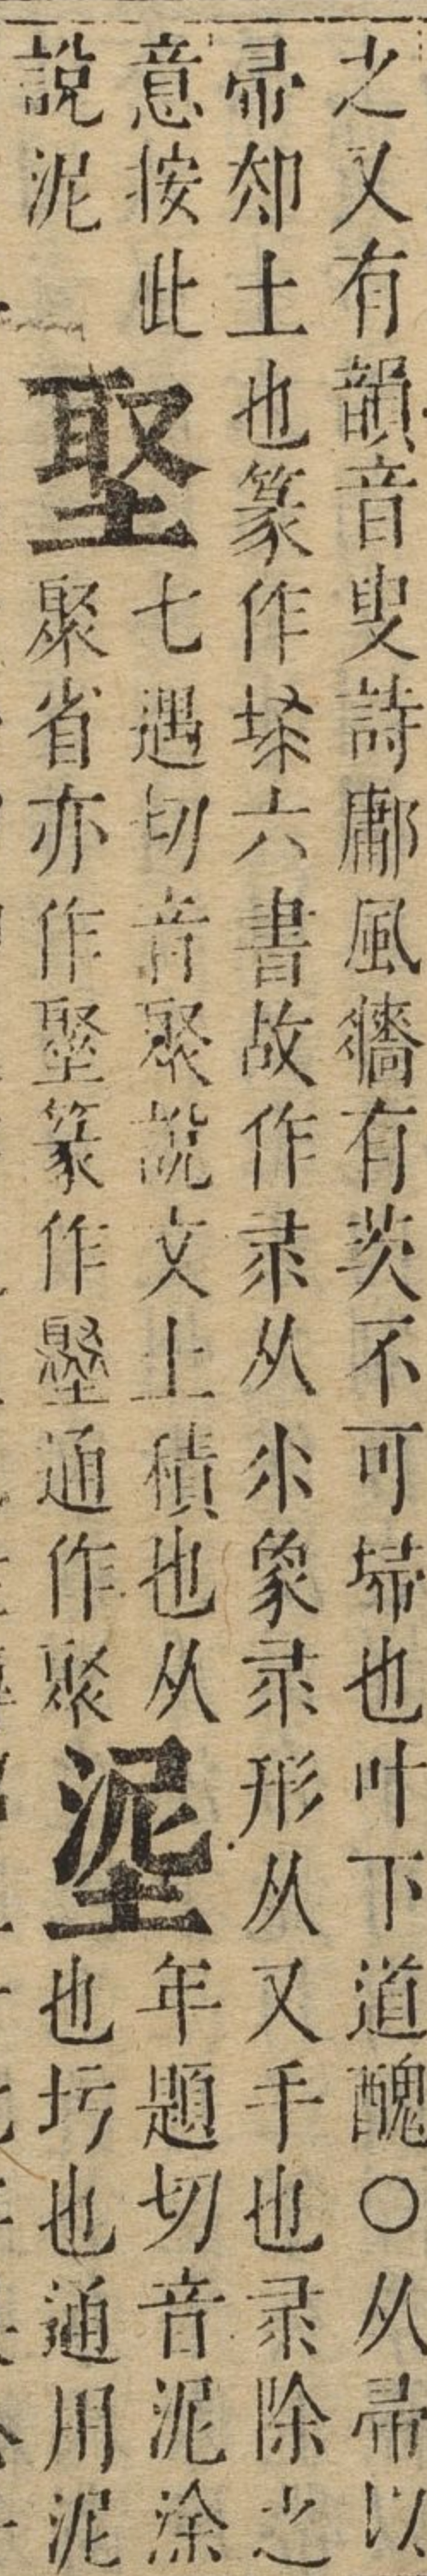 之又有韻音叟詩鄘風牆有茨不可埽也叶下道醜○从帚以
帚却土也篆作六書故作从象形从又手也除之
意按此
說泥
埾
七遇切音聚說文土積也从
聚省亦作篆作通作聚
埿
年題切音泥涂
也圬也通用泥